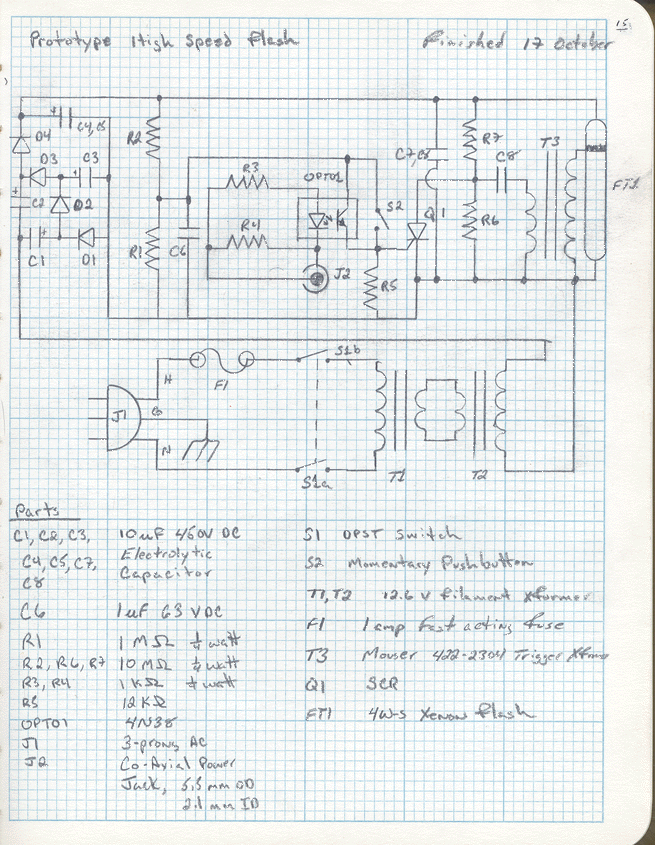 15
Prototype High Speed Flash
Finished 17 October
C4,C5
D4
D3
C3
C2
D2
C1
D1
R2
R1
C6
R3
R4
OPTO1
J2
S2
R5
Q1
C7,C8
R7
R6
C8
T3
FT1
J1
H
G
N
F1
S1b
S1a
T1
T2
Parts
C1, C2, C3, 10uF 450V DC
C4, C5, C7, Electrolytic
C8 Capacitor
C6 1uF 63 VDC
R1 1 MΩ 1/4 watt
R2, R6, R7 10 MΩ 1/4 watt
R3, R4 1 KΩ 1/4 watt
R5 12 KΩ
OPTO1 4N38
J1 3-prong AC
J2 Co-Axial Power
Jack, 5.5 mm OD
2.1 mm ID
S1 DPST Switch
S2 Momentary Pushbutton
T1, T2 12.6 V filament Xformer
F1 1 amp fast acting fuse
T3 Mouser 422-2304 Trigger Xfrmr
Q1 SCR
FT1 4W-S Xenon flash